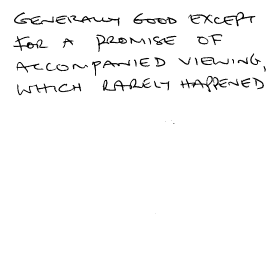 GENERALLY GOOD EXCEPT
FOR A PROMISE OF
ACCOMPANIED VIEWING,
WHICH RARELY HAPPENED